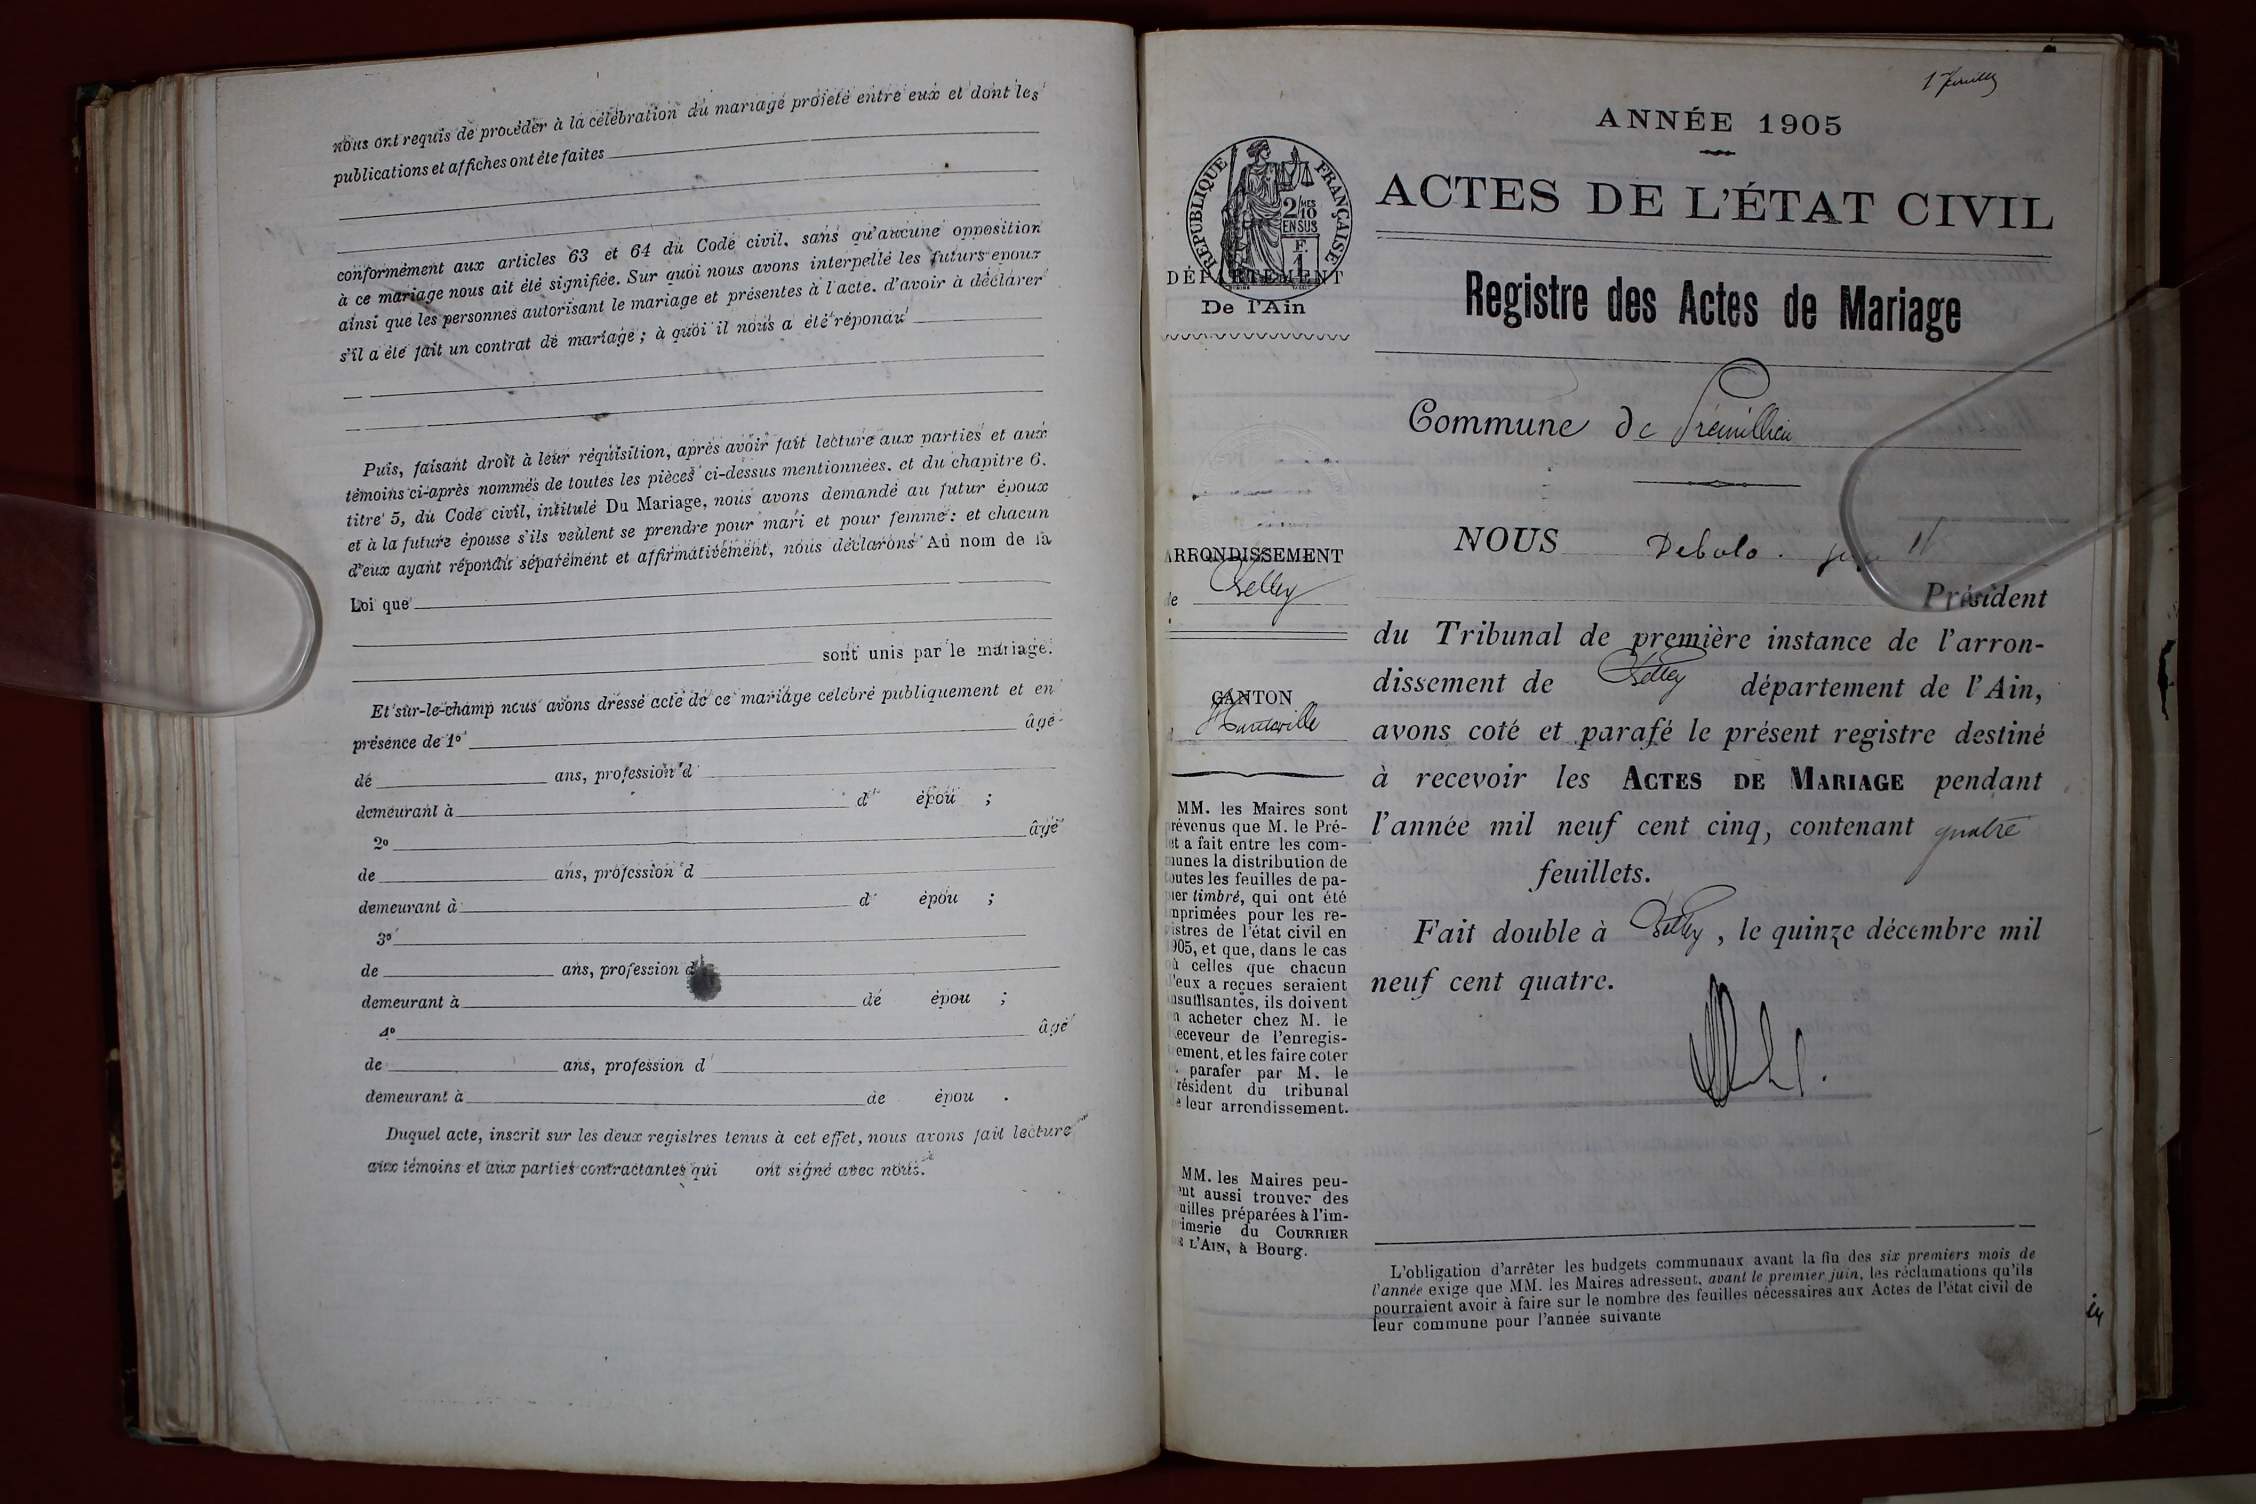 nous ont requis de procéder à la célébration du mariage projeté entre eux et dont les
publications et affiches ont été faites
conformément aux articles 63 et 64 du Code civil, sans qu'aucune opposition
à ce mariage nous ait été signifiée. Sur quoi nous avons interpellé les futurs époux
ainsi que les personnes autorisant le mariage et présentes à l'acte, d'avoir à déclarer
s'il a été fait un contrat de mariage ; à quoi il nous a été répondu
Puis, faisant droit à leur réquisition, après avoir fait lecture aux parties et aux
témoins ci-après nommés de toutes les pièces ci-dessus mentionnées, et du chapitre 6,
titre 5, du Code civil, intitulé Du Mariage, nous avons demandé au futur époux
et à la future épouse s'ils veulent se prendre pour mari et pour femme : et chacun
d'eux ayant répondu séparément et affirmativement, nous déclarons Au nom de la
Loi que
sont unis par le mariage.
Et sur-le-champ nous avons dressé acte de ce mariage célébré publiquement et en
présence de 1º âgé
de ans, profession d
demeurant à d épou ;
2º âgé
de ans, profession d
demeurant à d épou ;
3º
de ans, profession d
demeurant à de épou ;
4º âgé
de ans, profession d
demeurant à de épou .
Duquel acte, inscrit sur les deux registres tenus à cet effet, nous avons fait lecture
aux témoins et aux parties contractantes qui ont signé avec nous.
ANNÉE 1905
RÉPUBLIQUE FRANÇAISE
2/10 MES
EN SUS
F.
1
ACTES DE L'ÉTAT CIVIL
DÉPARTEMENT
De l'Ain
Registre des Actes de Mariage
Commune de Prémillieu
ARRONDISSEMENT
de Belley
CANTON
Hauteville
MM. les Maires sont
prévenus que M. le Pré-
fet a fait entre les com-
munes la distribution de
toutes les feuilles de pa-
pier timbré, qui ont été
imprimées pour les re-
gistres de l'état civil en
1905, et que, dans le cas
où celles que chacun
d'eux a reçues seraient
insuffisantes, ils doivent
en acheter chez M. le
Receveur de l'enregis-
trement, et les faire coter
et parafer par M. le
Président du tribunal
de leur arrondissement.
MM. les Maires peu-
vent aussi trouver des
feuilles préparées à l'im-
primerie du COURRIER
DE L'AIN, à Bourg.
NOUS
Président
du Tribunal de première instance de l'arron-
dissement de Belley département de l'Ain,
avons coté et parafé le présent registre destiné
à recevoir les ACTES DE MARIAGE pendant
l'année mil neuf cent cinq, contenant quatre
feuillets.
Fait double à Belley, le quinze décembre mil
neuf cent quatre.
L'obligation d'arrêter les budgets communaux avant la fin des six premiers mois de
l'année exige que MM. les Maires adressent, avant le premier juin, les réclamations qu'ils
pourraient avoir à faire sur le nombre des feuilles nécessaires aux Actes de l'état civil de
leur commune pour l'année suivante